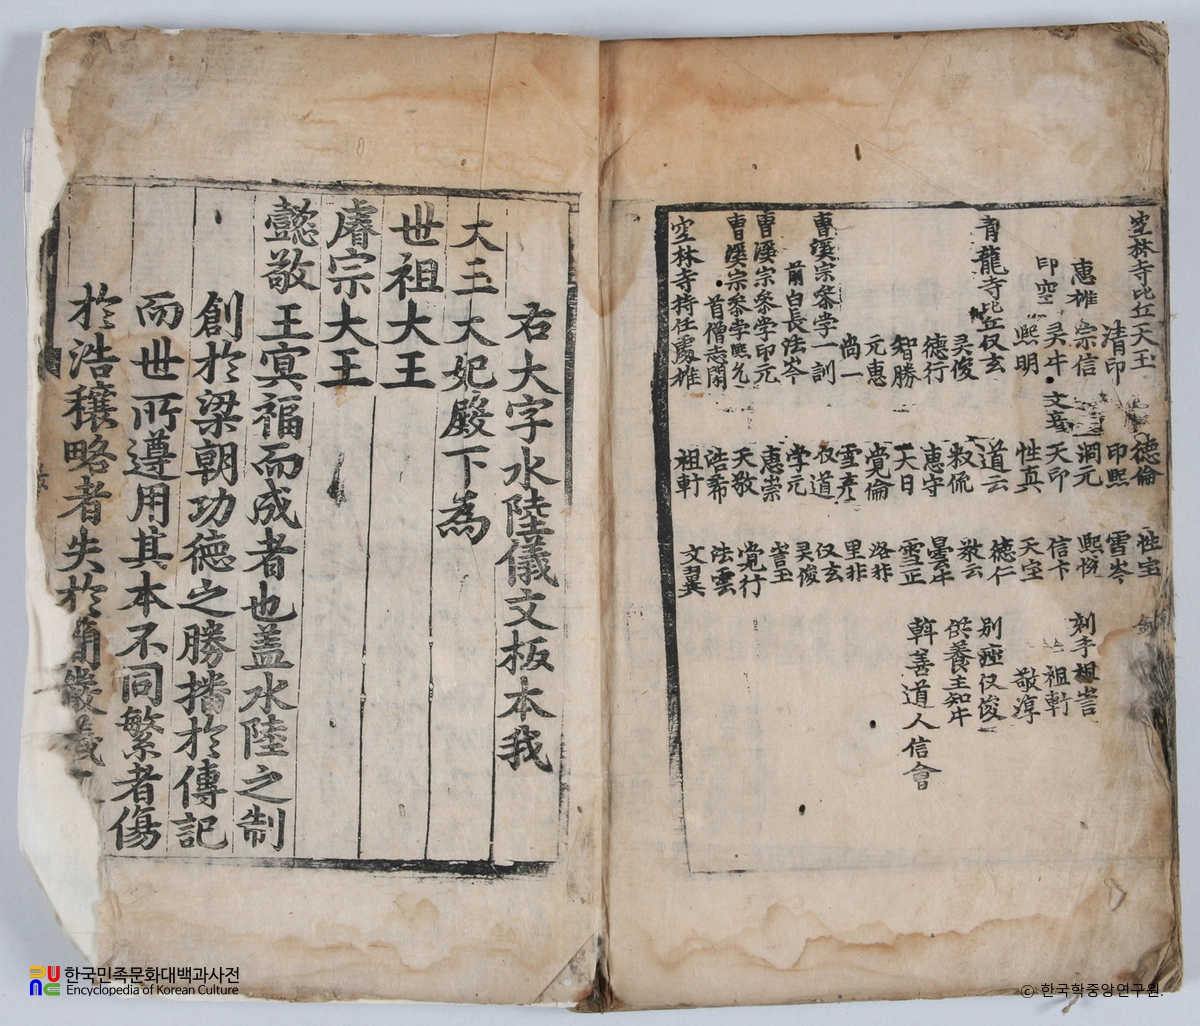 空林寺比丘天玉 德倫 性宝
清印 印熙 雪岑
惠椎 宗信 洞元 熙悅 刻手祖訔
印空 灵牛 天印 信卞 祖軒
熙明 性真 天宝 敬淳
青龍寺比丘仅玄 道云 德仁 别座仅俊
灵俊 敬云 供養主知牛
德行 惠守 曇牛
智勝 天日 雪正 幹善道人信會
元惠 覚倫 洛非
尚一 雪彦 里非
曺溪宗叅学一訓 仅道 仅玄
前白長法岑 学元 灵俊
曺溪宗叅学印元 惠崇 訔玉
曺溪宗叅学熙允 天敬 覚行
首僧志閑 浩希 法雲
空林寺持任處雄 祖軒 文翼
右大字水陸儀文板本我
大王大妃殿下為
世祖大王
睿宗大王
懿敬王冥福而成者也盖水陸之制
創於梁朝功德之勝播於傳記
而世所遵用其本不同繁者傷
於浩穰略者失於簡
한국민족문화대백과사전
Encyclopedia of Korean Culture
© 한국학중앙연구원.